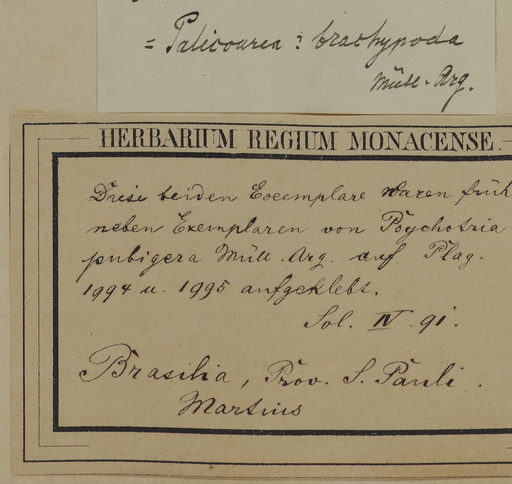 = Palicourea ? brachypoda
Müll. Arg.
HERBARIUM REGIUM MONACENSE.
Diese beiden Exemplare waren früh
neben Exemplaren von Psychotria
pubigera Müll. Arg. auf Plag.
1994 u. 1995 aufgeklebt.
Sol. IV. 91.
Brasilia, Prov. S. Pauli.
Martius